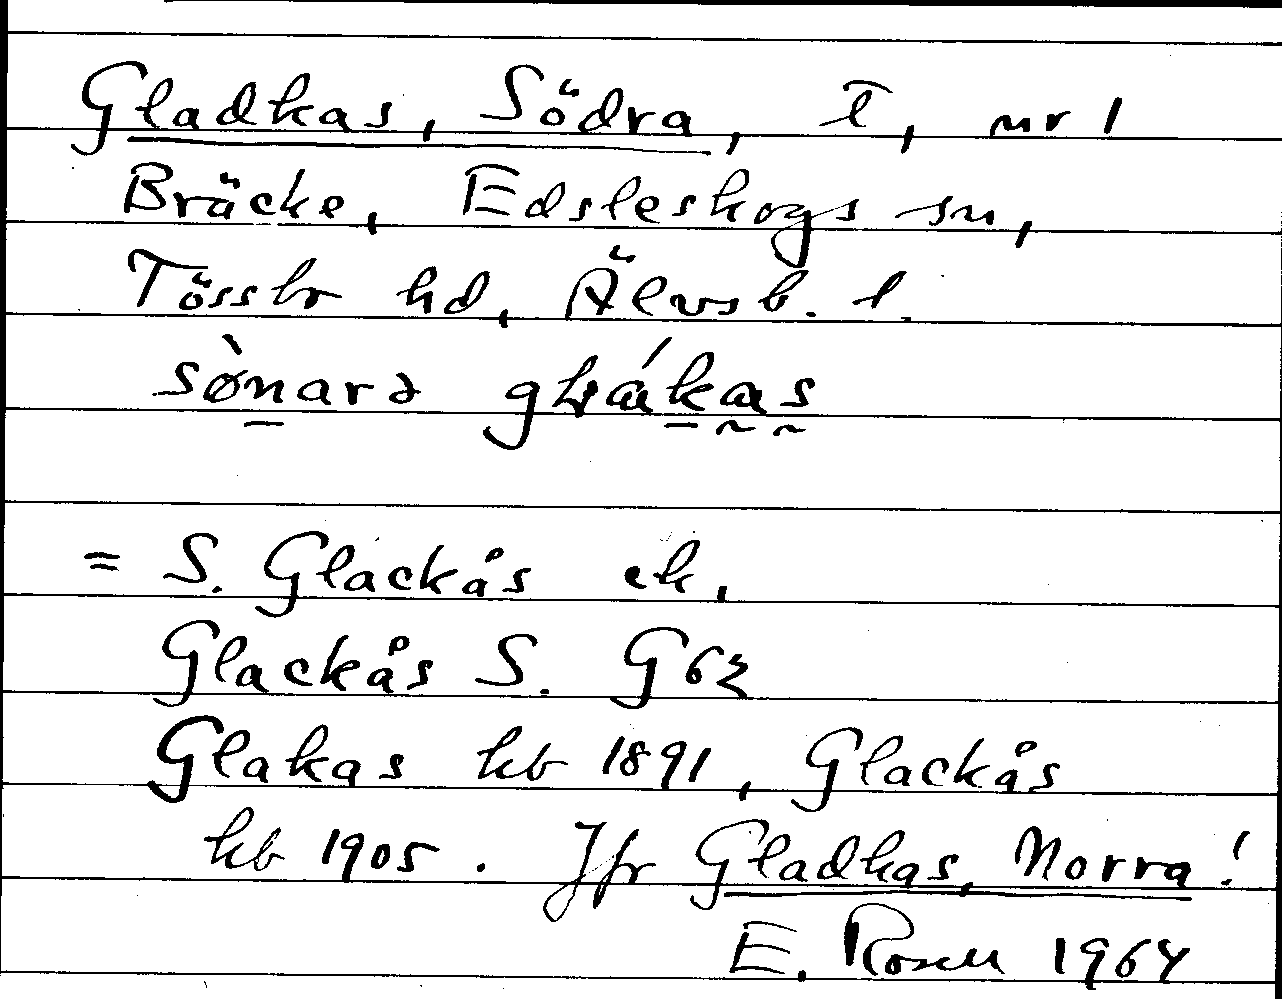 Gladkas, Södra, l, nr 1
Bräcke, Edsleskogs sn,
Tössbo hd, Älvsb. l.
sø̀narə
= S. Glackås ek,
Glackås S. G 62
Glakas kb 1891, Glackås
kb 1905. Jfr Gladkas, Norra!
E. Rosell 1964